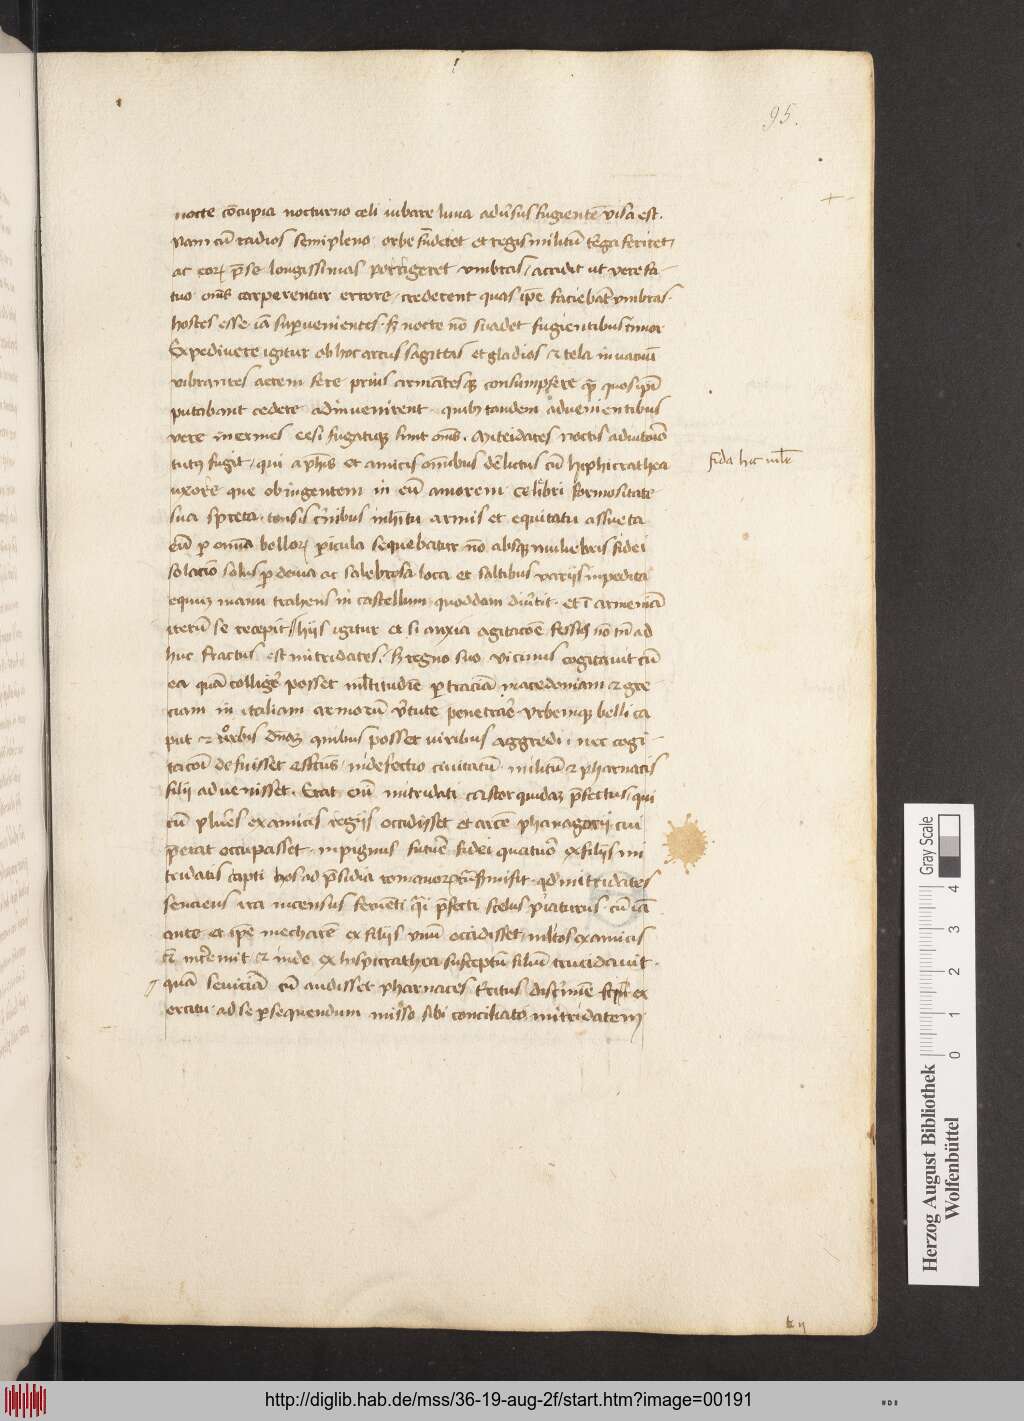 95.
nocte cōcupia nocturno celi iubare luna adūsus fugientē visa est.
Nam cū radios semipleno orbe fūderet et regis militū terga feriret,
ac eorꝝ p̄ se longissimas porrigeret vmbras, accidit ut vere fa-
tuo oēs carperentur errore, crederent quas ip̄e faciebāt vmbras.
hostes esse iā supervenientes. sꝫ nocte nō suadet fugientibus timor
Expedivere igitur ob hoc arcus sagittas et gladios et tela in vacuū
vibrantes aerem fere prius armātesqꝫ consumpsere qꝫ quos ip̄i
putabant cedere adinvenirent. quibꝫ tandem advenientibus
vere inermes cesi fugatiqꝫ sunt oēs. Miteidates noctis adiutorio
tutus fugit, qui a p̄his et amicis omībus delictus cū hiphicrathea
uxore que ob ingentem in eū amorem celibri formositate
sua spreta tonsis crinibus inhitu armis et equitatu assueta
eū p omnia bellorꝝ picula sequebatur nō absqꝫ muliebris fidei
solacio solus p devia ac salebrosa loca et saltibus variis impedita
equum manu trahens in castellum quoddam divertit. et ī armeniā
iterū se recepit, hijs igitur et si anxia agitacōe fessus nō tn̄ ad
huc fractus est mitridates, sꝫ regno suo vicinus cogitavit cū
ea quā colligere posset multitudine p traciā macedoniam et gre
ciam in italiam armorū vtute penetrare vrbemqꝫ belli ca
put et orbis dn̄aꝫ quibus posset viribus aggredi, nec cogi-
tacōi defuisset effectus, ni defectio civitatū militū et pharnacis
filij advenisset. Erat enī mitridati castor quidaꝫ p̄fectus, qui
cū plures ex amicis regijs occidisset et arcē phanagorij cui
p̄erat occupasset in pignus future fidei quatuor ex filijs mi
tridatis capti hos ad p̄sidia romanorꝝ trāsmisit. qd mitridates
senciens ira incensus
ante et ip̄e mecharē ex filijs vnū occidisset, multos ex amicis
et īteremit et inde ex hispicrathea susceptū filiū trucidavit.
quā seviciā cū audisset pharnaces territus discrimine ex
ercitu ad se p̄sequendum misso sibi conciliato mitridatem
fida hec mulier
Herzog August Bibliothek
Wolfenbüttel
Gray Scale
0 1 2 3 4
http://diglib.hab.de/mss/36-19-aug-2f/start.htm?image=00191